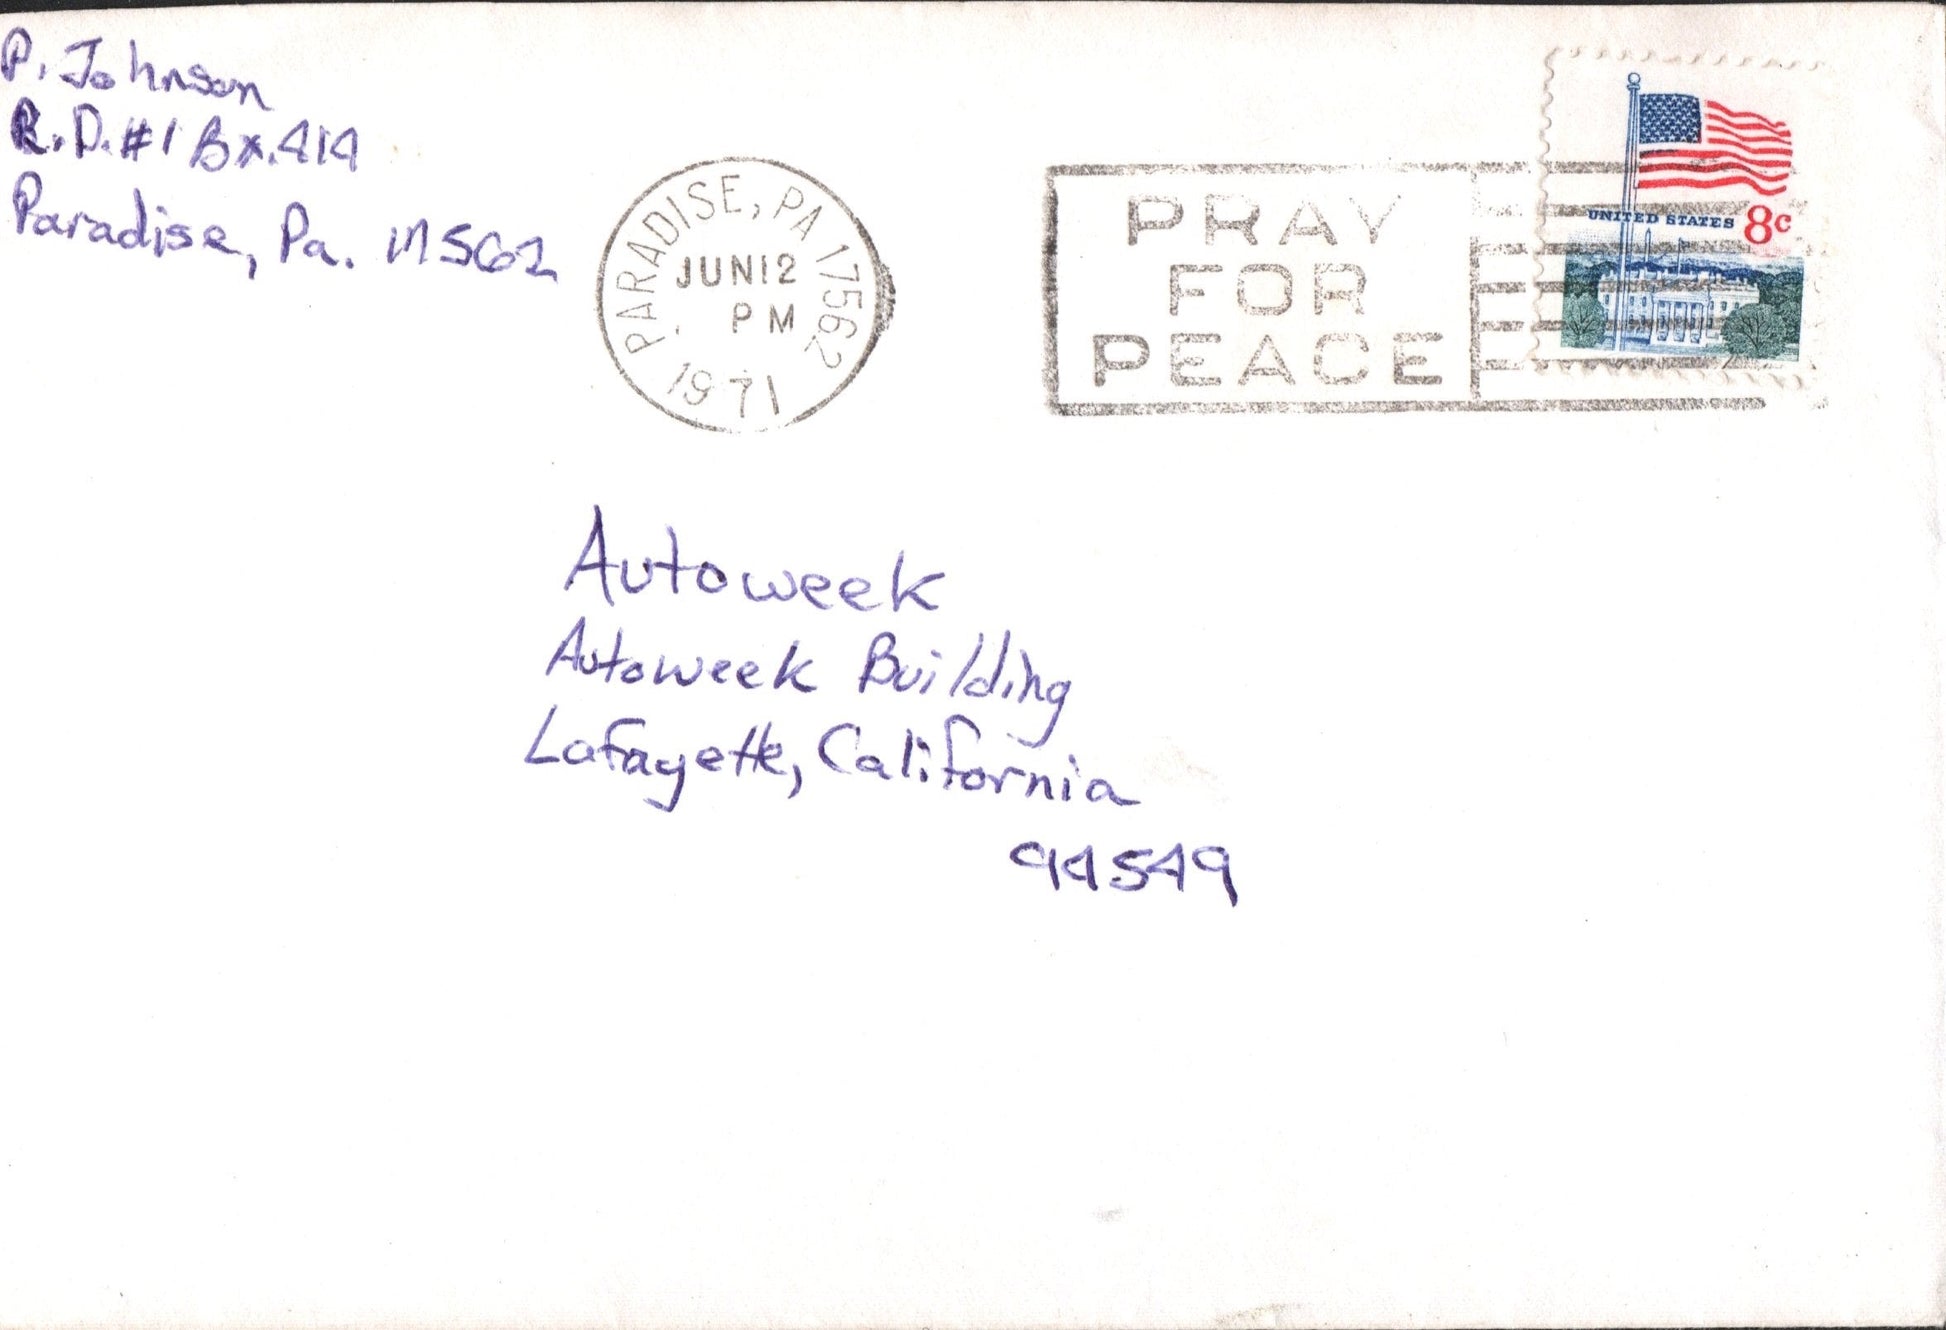 P. Johnson
R.D.#1 Bx.414
Paradise, Pa. 17562
PARADISE, PA 17562
JUN 12
PM
1971
PRAY
FOR
PEACE
UNITED STATES 8c
Autoweek
Autoweek Building
Lafayette, California
94549